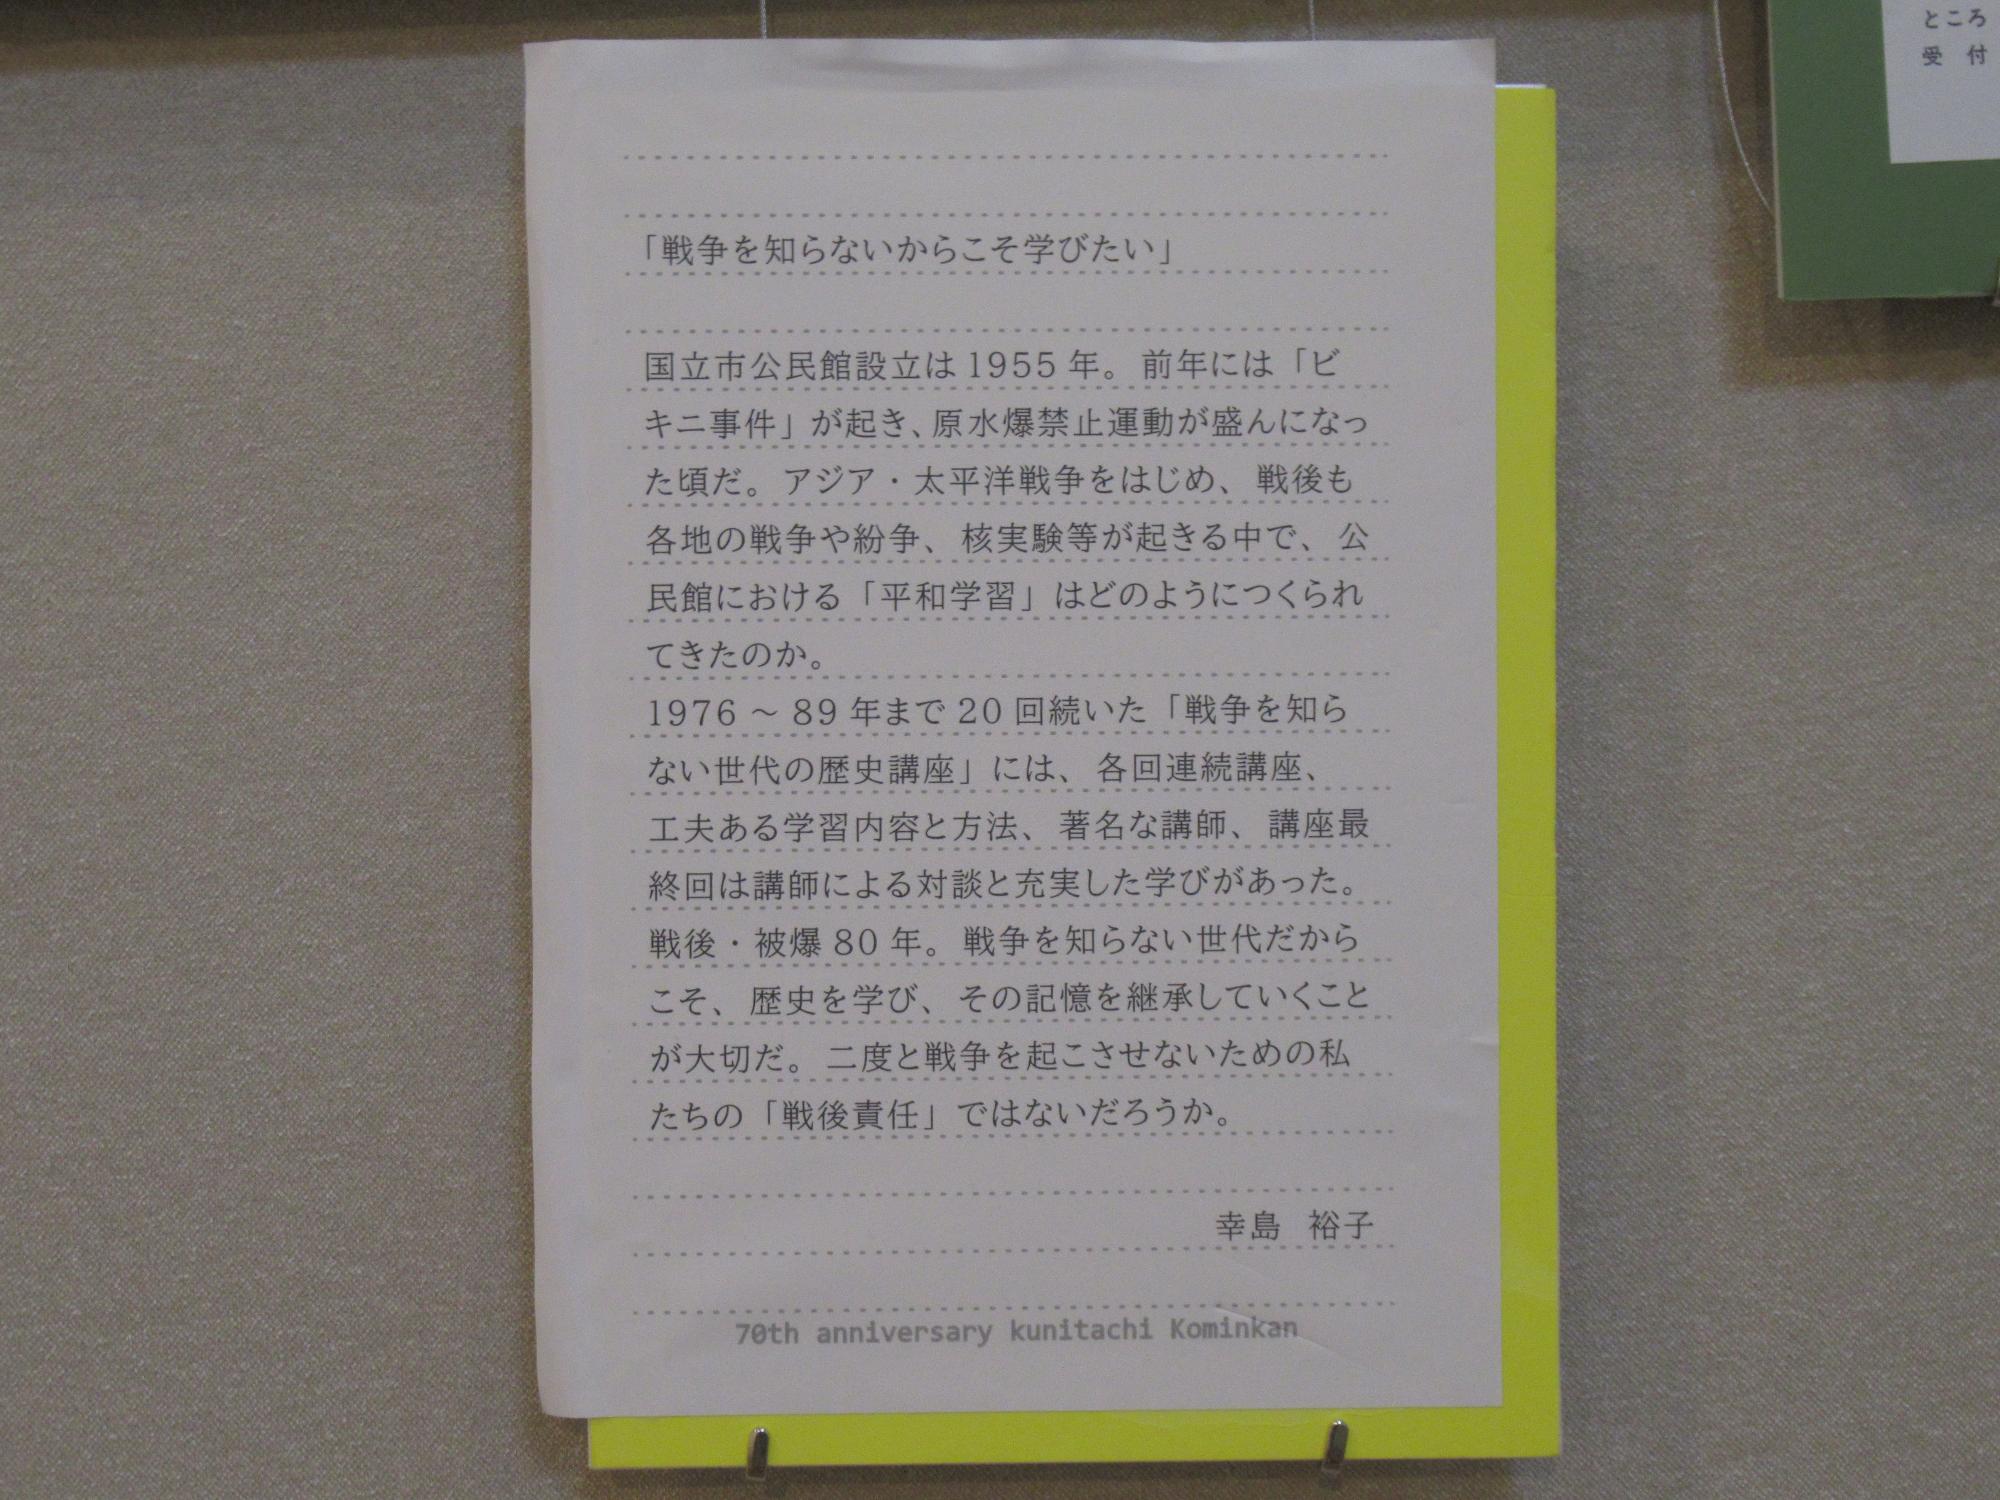 「戦争を知らないからこそ学びたい」
国立市公民館設立は 1955 年。前年には「ビ
キニ事件」が起き、原水爆禁止運動が盛んになっ
た頃だ。アジア・太平洋戦争をはじめ、戦後も
各地の戦争や紛争、核実験等が起きる中で、公
民館における「平和学習」はどのようにつくられ
てきたのか。
1976 ～ 89 年まで 20 回続いた「戦争を知ら
ない世代の歴史講座」には、各回連続講座、
工夫ある学習内容と方法、著名な講師、講座最
終回は講師による対談と充実した学びがあった。
戦後・被爆 80 年。戦争を知らない世代だから
こそ、歴史を学び、その記憶を継承していくこと
が大切だ。二度と戦争を起こさせないための私
たちの「戦後責任」ではないだろうか。
幸島　裕子
70th anniversary kunitachi Kominkan
ところ
受　付